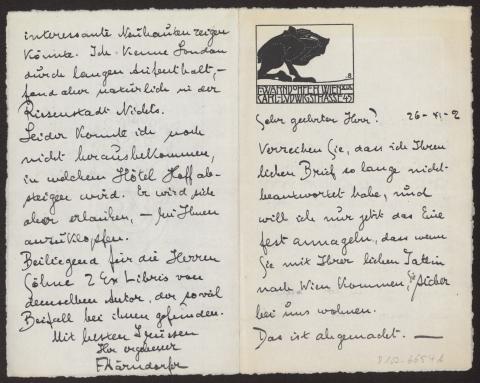 F. WÄRNDORFER WIEN XVIII
CARL-LUDWIGSTRASSE 45
26-XI-2
Sehr geehrter Herr!
Verzeihen Sie, dass ich Ihren
lieben Brief so lange nicht
beantwortet habe, und
will ich nur jetzt das Eine
fest annageln, dass wenn
Sie mit Ihrer lieben Tattin
nach Wien kommen, Sie sicher
bei uns wohnen.
Das ist abgemacht. —
interessante Neubauten zeigen
könnte. Ich kenne London
durch langen Aufenthalt, –
fand aber natürlich in der
Riesenstadt Nichts.
Leider konnte ich noch
nicht herausbekommen,
in welchem Hôtel Hoff ab-
steigen wird. Er wird sich
aber erlauben, – bei Ihnen
anzuklopfen.
Beiliegend für die Herren
Söhne 2 Ex Libris von
demselben Autor, der so viel
Beifall bei ihnen gefunden.
Mit besten Grüssen
Ihr ergebener
FWärndorfer